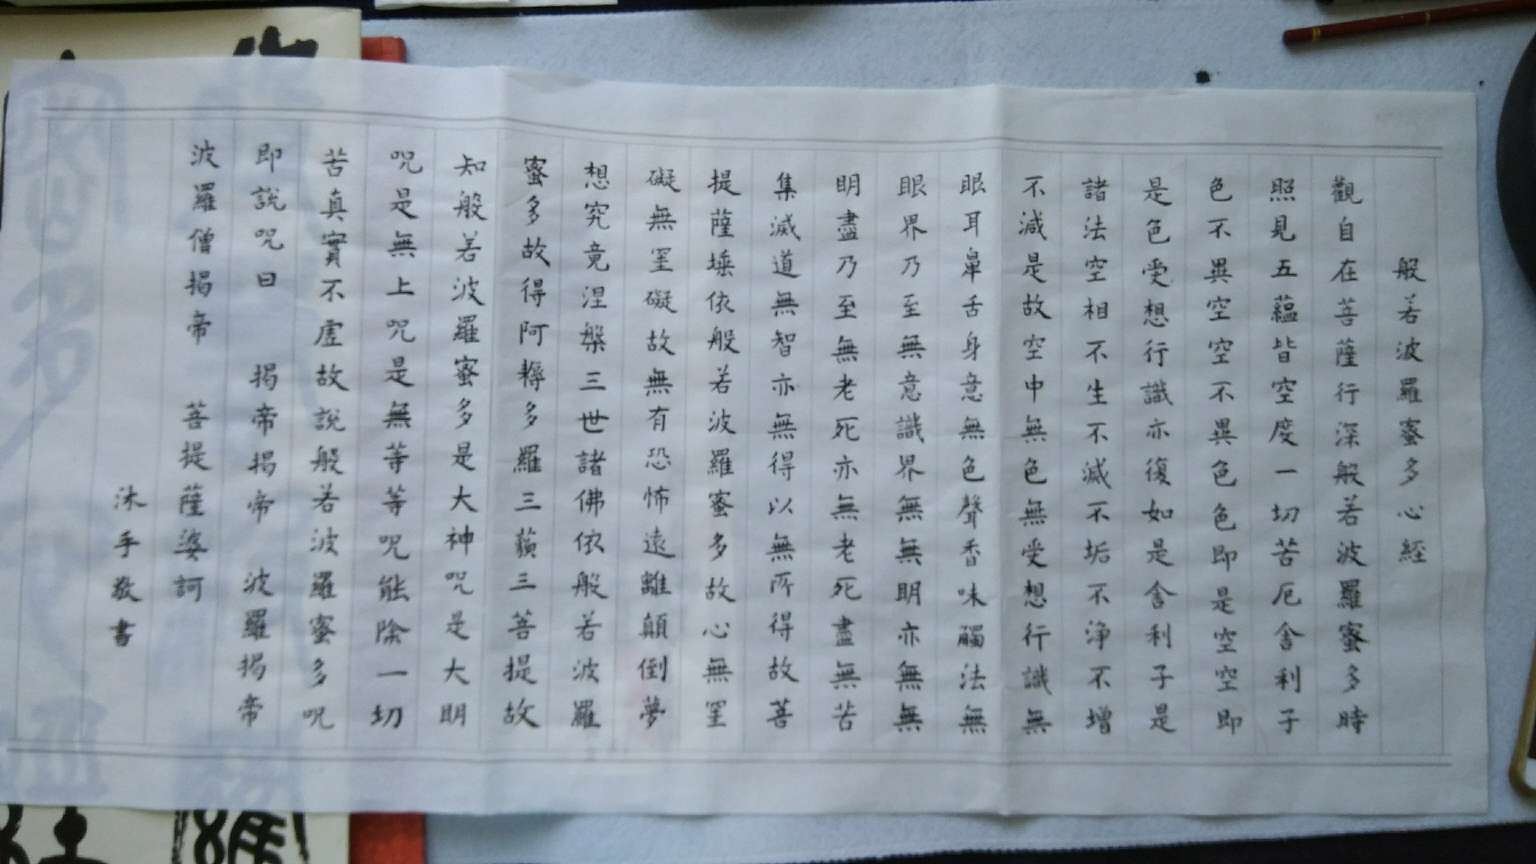 般若波羅蜜多心経
觀自在菩薩行深般若波羅蜜多時
照見五蘊皆空度一切苦厄舍利子
色不異空空不異色色即是空空即
是色受想行識亦復如是舍利子是
諸法空相不生不滅不垢不淨不增
不減是故空中無色無受想行識無
眼耳鼻舌身意無色聲香味觸法無
眼界乃至無意識界無無明亦無無
明盡乃至無老死亦無老死盡無苦
集滅道無智亦無得以無所得故菩
提薩埵依般若波羅蜜多故心無罣
礙無罣礙故無有恐怖遠離顛倒夢
想究竟涅槃三世諸佛依般若波羅
蜜多故得阿耨多羅三藐三菩提故
知般若波羅蜜多是大神咒是大明
咒是無上咒是無等等咒能除一切
苦真實不虛故說般若波羅蜜多咒
即說咒曰 揭帝揭帝 波羅揭帝
波羅僧揭帝 菩提薩婆訶
沐手敬書